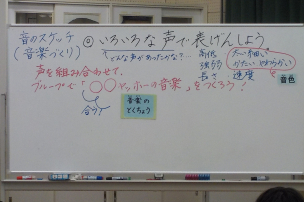 音のスケッチ
(音楽づくり)
◎いろいろな声で表げんしよう
どんな声があったかな?…
高低
強弱
長さ
太い 細い
かたい やわらかい
速度
音色
声を組み合わせて、
グループで「〇〇ヤッホーの音楽」をつくろう!
音楽の
とくちょう